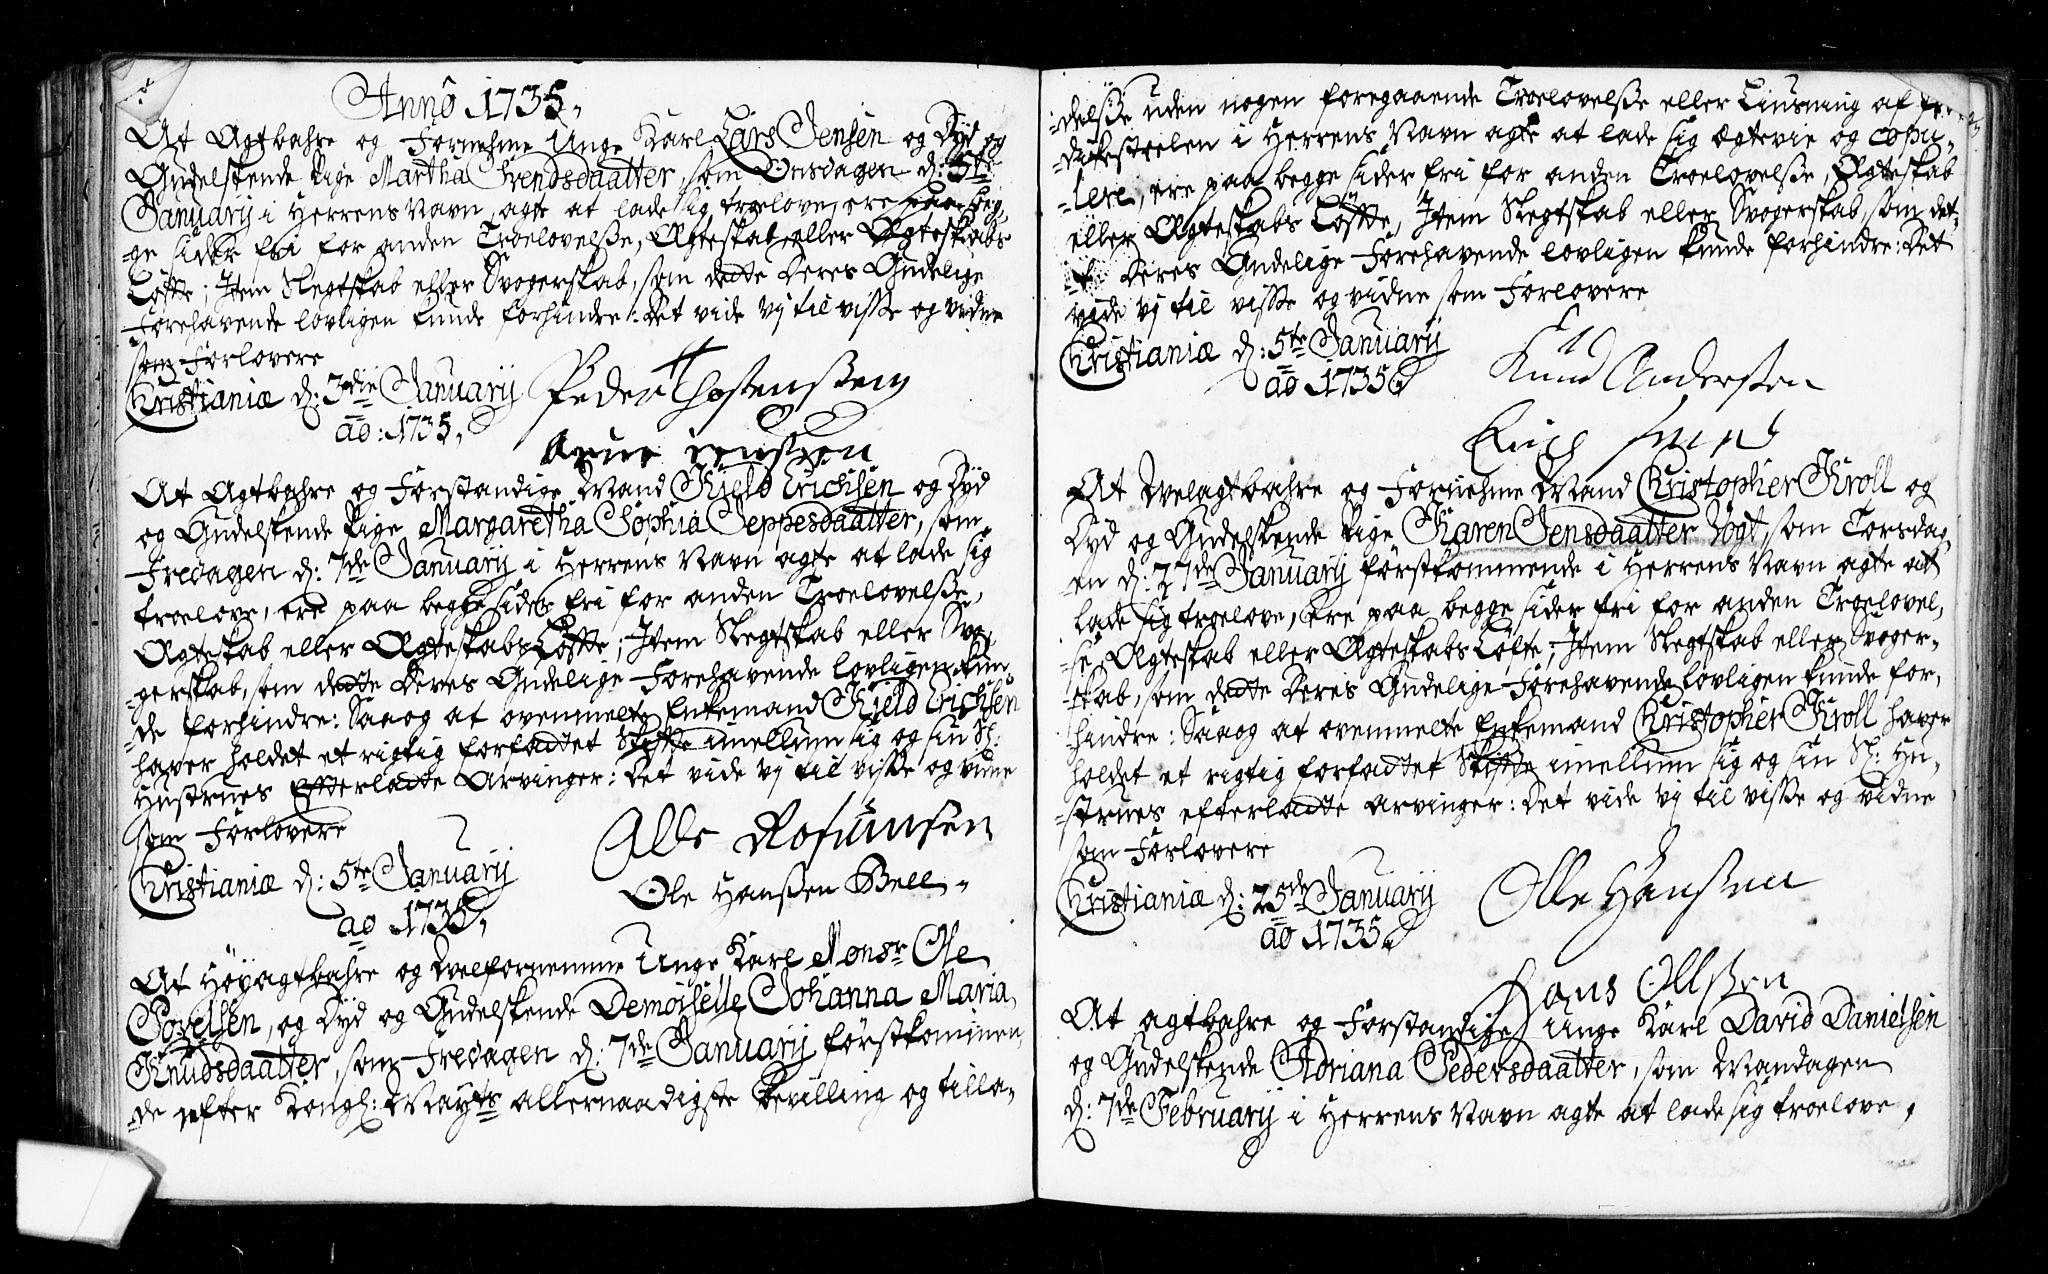 Anno 1735.
At Agtbahre og Fornehme Unge Karl Lars Jensen og Dyd og
Gudelskende Pige Martha Svendsdaatter, som Onsdagen d: 5te
January i Herrens Navn, agte at lade sig troelove, ere paa beg-
-ge sider fri for anden Troelovelsse, Ægteskab eller Ægteskabs
Løffte; Item Slegtskab eller Svogerskab, som dette Deres Gudelige
Forehavende lovligen kunde forhindre: Det vide vj til visse og vidne
som Forlovere
Christianiæ d: 3die January Peder Thostenssen
ao: 1735.
Arne jenssen
At Agtbahre og Forstandige Mand Kield Erichsen og Dyd
og Gudelskende Pige Margaretha Sophia Jeppesdaatter, som
Fredagen d: 7de January i Herrens Navn agte at lade sig
troelove, ere paa begge sider fri for anden Troelovelsse,
Ægteskab eller Ægteskabs Løffte; Item Slegtskab eller Svo-
-gerskab, som dette Deres Gudelige Forehavende lovligen kun-
-de forhindre: Saaog at ovenmelte Enkemand Kield Erichsen
haver holdet et rigtig forfattet Skiffte imellum sig og sin Sl:
Hustrues Efterladte Arvinger: Det vide vj til visse og vidne
som Forlovere
Christianiæ d: 5te January
ao 1735.
Ole Hanssen Bell.
At Høyagtbahre og Velfornemme Unge Karl Monsr Ole
Povelsen, og Dyd og Gudelskende Demoiselle Johanna Maria
Knudsdaatter, som Fredagen d: 7de January førstkommen-
-de efter Kongl: Mayts allernaadigste Bevilling og tilla-
-delsse uden nogen foregaaende Troelovelsse eller Liusning af
-dikestoelen i Herrens Navn agte at lade sig ægtevie og copu-
-lere, ere paa begge sider fri for anden Troelovelsse, Ægteskab
eller Ægteskabs Løffte, Item Slegtskab eller Svogerskab, som det-
-te Deres Gudelige Forehavende lovligen kunde forhindre: Det
vide vj til visse og vidne som Forlovere
Christianiæ d: 5te January
ao 1735. Knud Anderssen
At Velagtbahre og Fornehme Mand Christopher Kroll og
Dyd og Gudelskende Pige Karen Jensdaatter Vogt, som Torsdag-
-en d: 27de January førstkommende i Herrens Navn agte at
lade sig troelove, ere paa begge sider fri for anden Troelovel-
-se, Ægteskab eller Ægteskabs Løfte; Item Slegtskab eller Svoger-
-skab, som dette Deres Gudelige Forehavende lovligen kunde for-
-hindre: Saaog at ovenmelte Enkemand Christopher Kroll haver
holdet et rigtig forfattet Skiffte imellum sig og sin Sl: Hu-
-strues efterladte Arvinger: Det vide vj til visse og vidne
som Forlovere
Christianiæ d: 25de January Olle Hanssen
ao 1735.
Hans Ollssen
At Agtbahre og Forstandige Unge Karl David Danielsen
og Gudelskende Adriana Pedersdaatter, som Mandagen
d: 7de February i Herrens Navn agte at lade sig troelove,